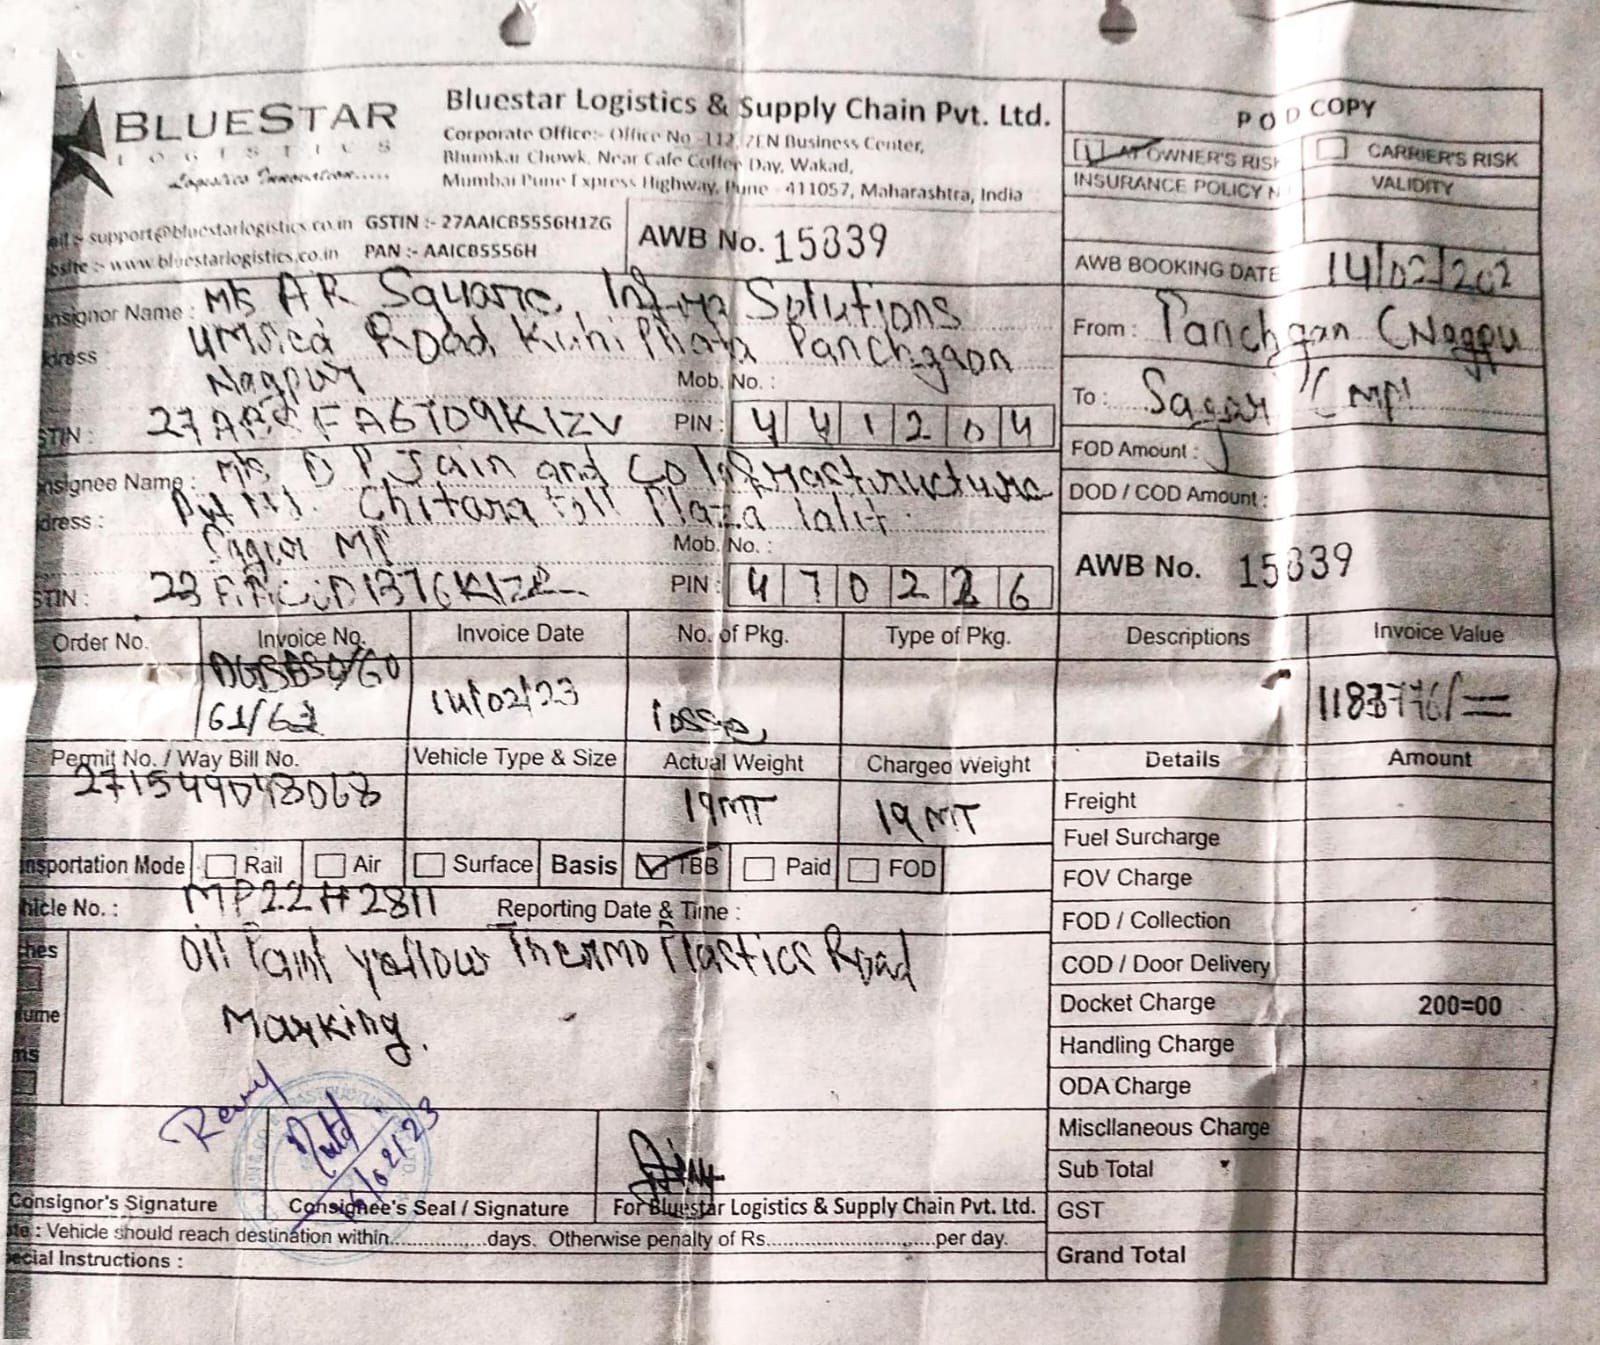 BLUESTAR
LOGISTICS
Logistics Innovation.....
Bluestar Logistics & Supply Chain Pvt. Ltd.
Corporate Office:- Office No -112, ZEN Business Center,
Bhumkar Chowk, Near Cafe Coffee Day, Wakad,
Mumbai Pune Express Highway, Pune - 411057, Maharashtra, India
support@bluestarlogistics.co.in GSTIN :- 27AAICB5556H1ZG
www.bluestarlogistics.co.in PAN :- AAICB5556H
AWB No. 15839
POD COPY
AT OWNER'S RISK CARRIER'S RISK
INSURANCE POLICY N VALIDITY
AWB BOOKING DATE 14/02/202
From : Panchgaon (Nagpu
To : Sagar (MP)
FOD Amount :
DOD / COD Amount :
AWB No. 15839
nsignor Name : M/s AR Square Infra Solutions
dress : Umred Road, Kuhi Phata Panchgaon
Nagpur Mob. No. :
STIN : PIN : 441204
nsignee Name : M/s D P Jain and Co Infrastructure
dress : Pvt ltd. Chitora toll Plaza
Sagar MP Mob. No. :
STIN : PIN : 470226
Order No. Invoice No. Invoice Date No. of Pkg. Type of Pkg. Descriptions Invoice Value
61/62 14/02/23
Permit No. / Way Bill No. Vehicle Type & Size Actual Weight Charged Weight Details Amount
271549048068 19MT 19MT
nsportation Mode Rail Air Surface Basis TBB Paid FOD
hicle No. : MP22H2811 Reporting Date & Time :
Oil Paint yellow Thermo Plastics Road
Marking.
Freight
Fuel Surcharge
FOV Charge
FOD / Collection
COD / Door Delivery
Docket Charge 200=00
Handling Charge
ODA Charge
Miscllaneous Charge
Sub Total
GST
Grand Total
02/23
Consignor's Signature Consignee's Seal / Signature For Bluestar Logistics & Supply Chain Pvt. Ltd.
te : Vehicle should reach destination within................days. Otherwise penalty of Rs............................per day.
ecial Instructions :